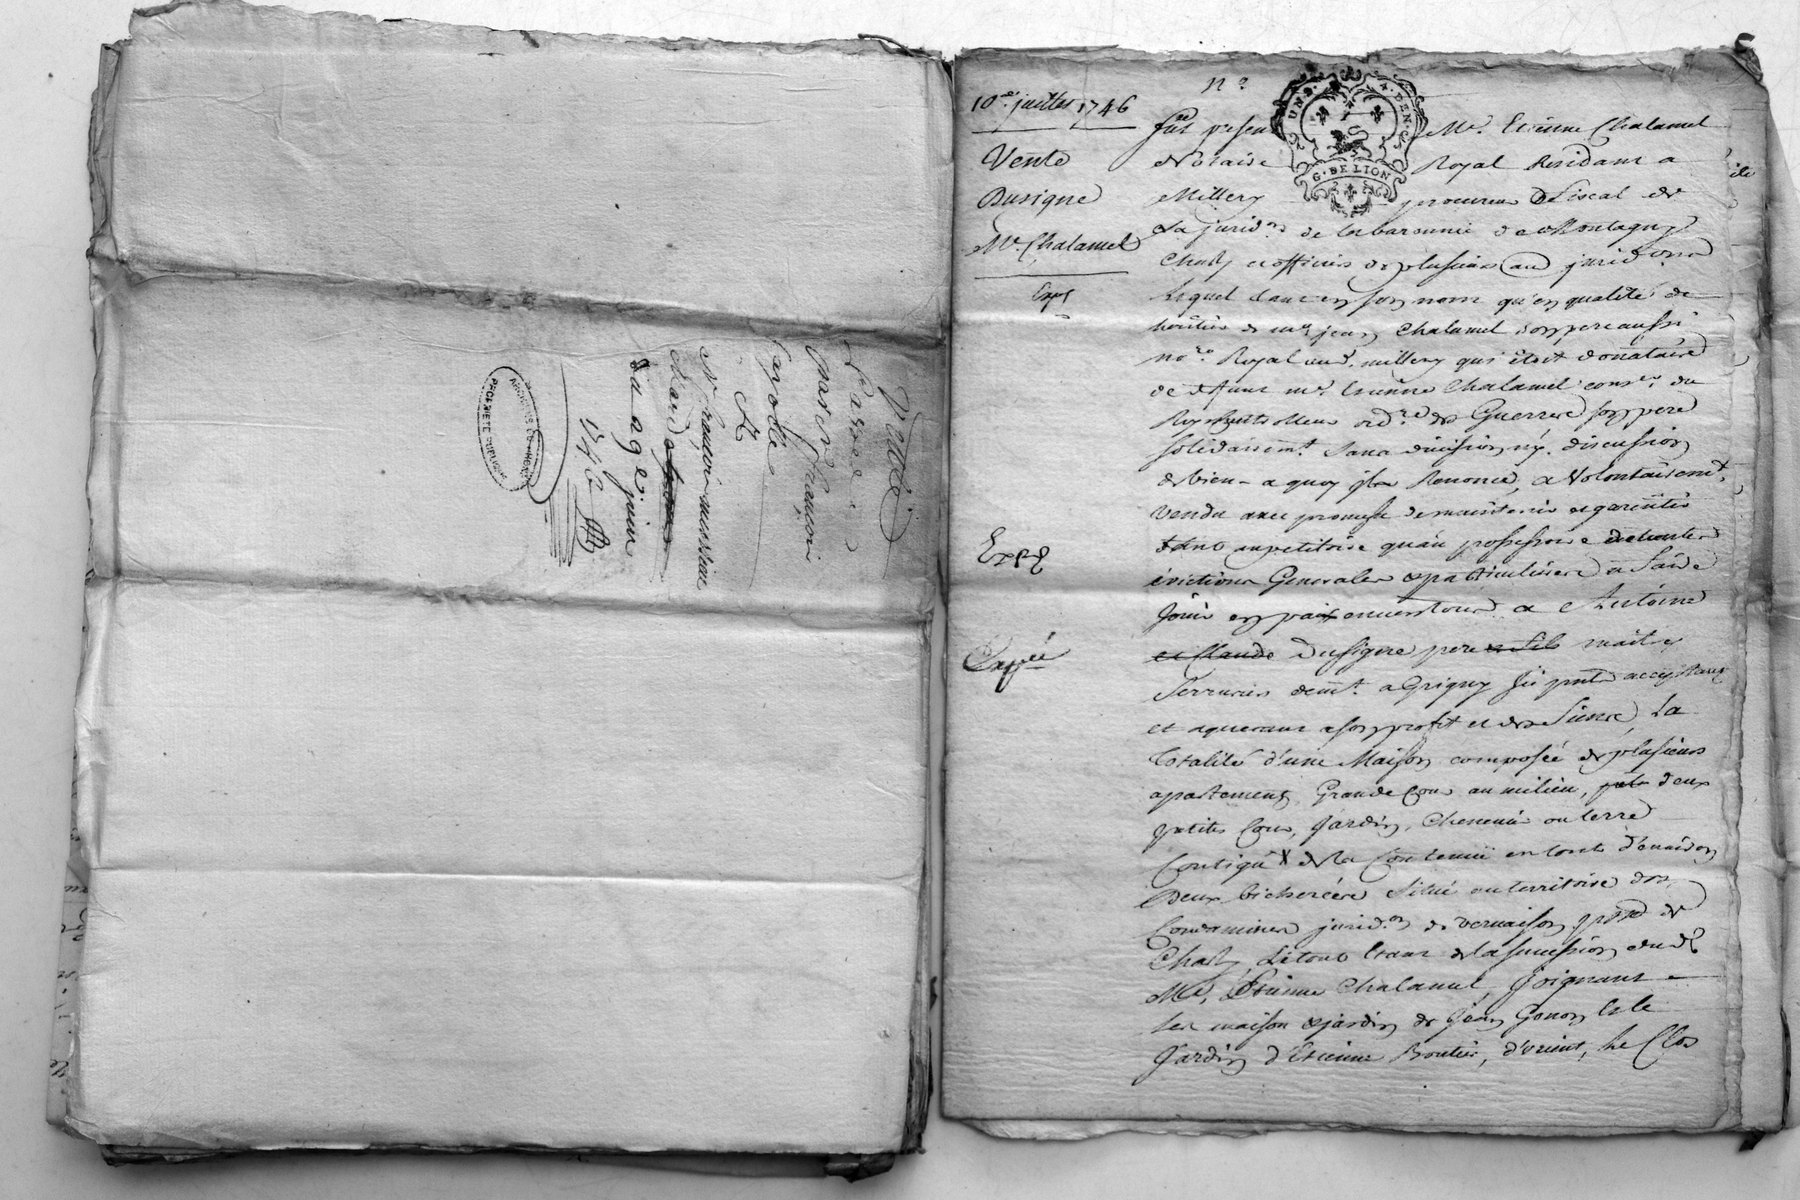 Vente
Passée
par Sr françois
Layolle
A
Sr françois
du age juin
1746
ARCHIVES DU RHONE
PROPRIETE PUBLIQUE
10e. juillet 1746
Vente
Dusigne
Me. Chalamel
Expé
Expé
Expée
n.o
UN S. N DEN.
G. DE LION
fut present Me. Etienne Chalamel
Notaire Royal Residant a
Millery procureur Fiscal de
La jurid.on de la baronnie de Montagny
Charly et officier de plusieurs au jurid.ons
Lequel tant en son nom qu'en qualité de
heritier de me jean Chalamel son pere aussi
no.re Royal aud. millery qui étoit donataire
de defunt me. Etienne Chalamel cons.er du
Roy ord.re des Guerres son pere
solidairemt. sans division ny discussion
de bien a quoy il Renonce, a Volontairemt.
vendu avec promesse de maintenir et garentir
tant au petitoire qu'au possessoire de toutes
évictions Generales & particulieres et faire
jouir en paix envers tous a Antoine
et Claude Dusigne pere et fils maitre
Serrurier demt. a Grigny ici pnt acceptant
et aquerant a son profit et des siens, La
Totalité d'une Maison composée de plusieurs
apartements, Grande Cour au milieu, deux
petites Cour, Jardin, Chenevier ou terre
Contigue X de la Contenue en tout d'environ
Deux bicherées Situé au territoire des
Condamines jurid.on de vernaison, p.sse de
Charly, Le tout etant de la sucession dud.
Me. Etienne Chalamel, Joignant
les maison & jardin de Jean Gonon & le
Jardin d'Etienne Boutier, d'orient, Le Clos